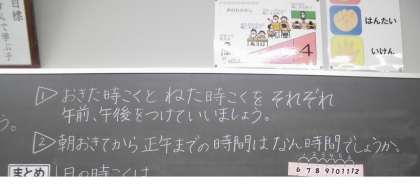 目標
はんたい
いけん
4
① おきた時こくと ねた時こくを それぞれ
午前、午後をつけていいましょう。
う。
② 朝おきてから正午までの時間はなん時間でしょうか。
まとめ
1日の時こくは
6 7 8 9 10 11 12